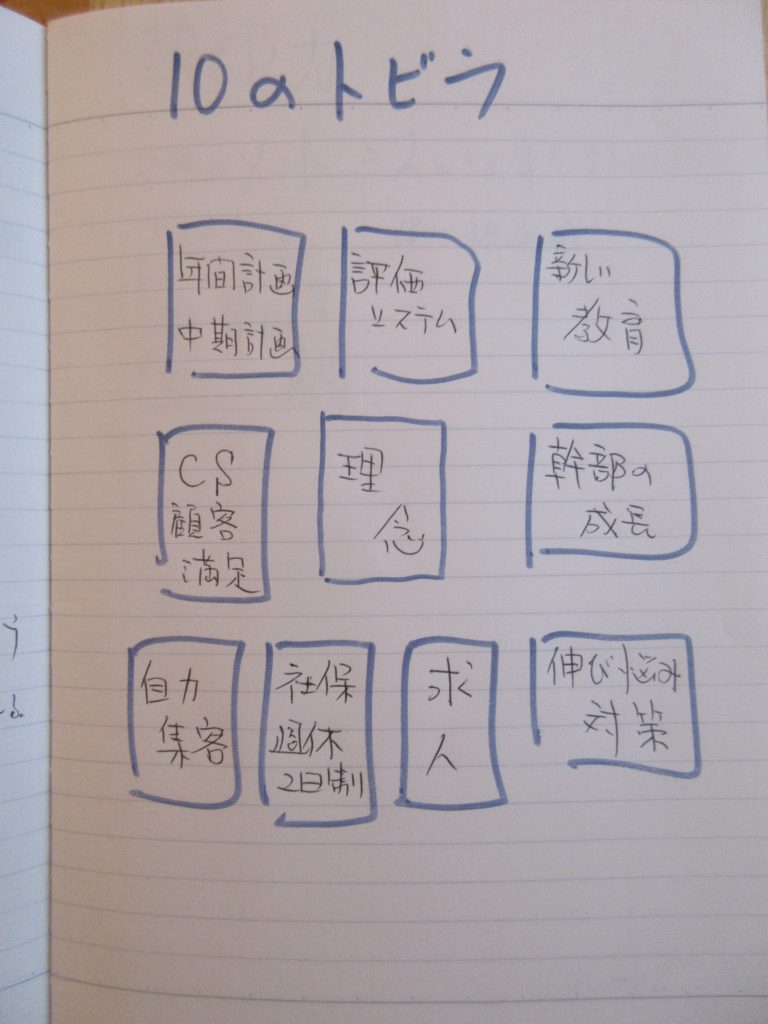 10のトビラ
年間計画
中期計画
評価
システム
新しい
教育
CS
顧客
満足
理
念
幹部の
成長
自力
集客
社保
週休
2日制
求
人
伸び悩み
対策
う
る。